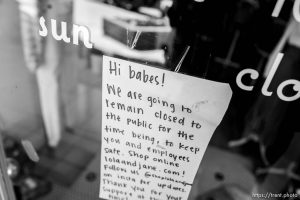 sun
clo
Hi babes!
We are going to
remain closed to
the public for the
time being, to keep
you and employees
safe. Shop online
lolaandjane.com!
Follow us
on insta for updates.
Thank you for your
support
https://trent.photo